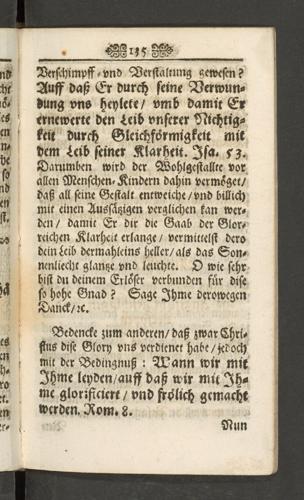 135
Verschimpff- vnd Verstaltung gewesen?
Auff daß Er durch seine Verwun-
dung vns heylete / vmb damit Er
ernewerte den Leib vnserer Nichtig-
keit durch Gleichförmigkeit mit
dem Leib seiner Klarheit. Isa. 53.
Darumben wird der Wohlgestallte vor
allen Menschen-Kindern dahin vermöget/
daß all seine Gestalt entweiche / vnd billich
mit einen Aussätzigen verglichen kan wer-
den / damit Er dir die Gaab der Glor-
reichen Klarheit erlange / vermittelst dero
dein Leib dermahleins heller / als das Son-
nenliecht glantze vnd leuchte. O wie sehr
bist du deinem Erlöser verbunden für dise
so hohe Gnad? Sage Ihme derowegen
Danck / ꝛc.
Bedencke zum anderen / daß zwar Chri-
stus dise Glory vns verdienet habe / jedoch
mit der Bedingnuß: Wann wir mit
Ihme leyden / auff daß wir mit Ih-
me glorificiert / vnd frölich gemacht
werden. Rom. 8.
Nun